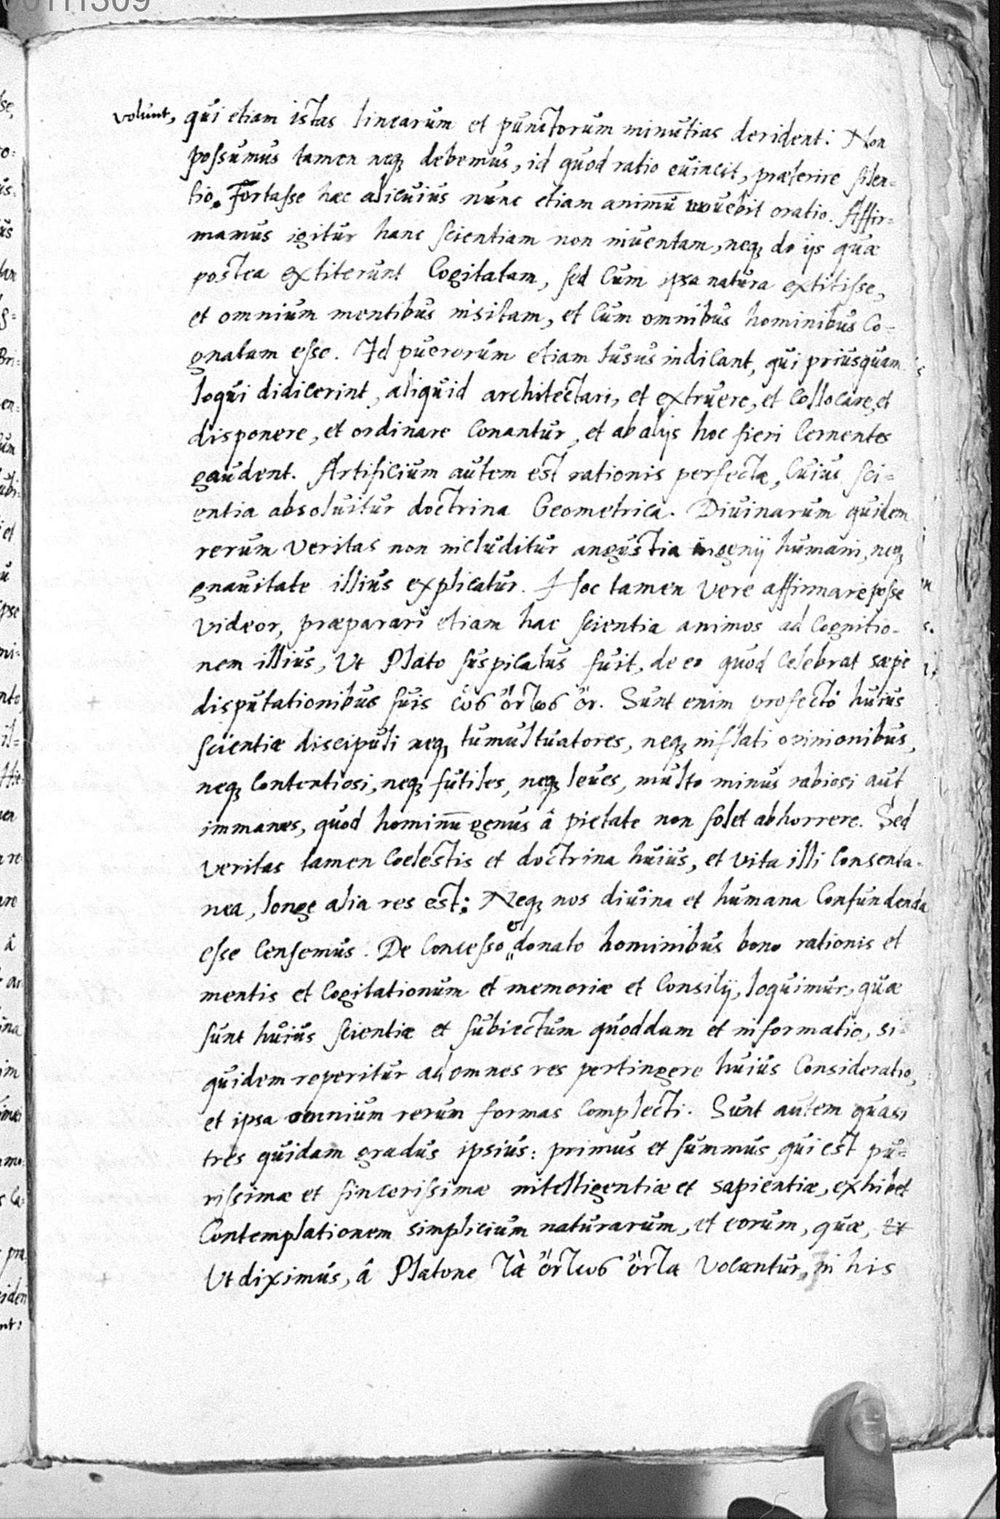 volunt, qui etiam istas linearum et punctorum minutias derident: Non
possumus tamen neq; debemus, id quod ratio euincit, præterire silen-
tio. Fortasse hæc alicuius nunc etiam animū mouebit oratio. Affir-
mamus igitur hanc scientiam non inuentam, neq; do ijs quæ
postea extiterunt Cogitatam, sed Cum ipsa natura extitisse,
et omnium mentibus insitam, et Cum omnibus hominibus Co-
gnatam esse. Id puerorum etiam lusus indicant, qui priusquam
loqui didicerint, aliquid architectari, et extruere, et Collocare, et
disponere, et ordinare Conantur, et ab alijs hoc fieri Cernentes
gaudent. Artificium autem est rationis perfectæ, Cuius sci-
entia absoluitur doctrina Geometrica. Diuinarum quidem
rerum Veritas non includitur angustia ingenij humani, neq;
gnauitate illius explicatur. Hoc tamen Vere affirmare posse
videor, præparari etiam hac scientia animos ad Cognitio-
nem illius, Ut Plato suspicatus fuit, de eo quod Celebrat sæpe
disputationibus suis ὄντως ὄν. Sunt enim profectò huius
scientiæ discipuli neq; tumultuatores, neq; inflati opinionibus,
neq; Contentiosi, neq; futiles, neq; leues, multo minus rabiosi aut
immanes, quod hominū genus â pietate non solet abhorrere. Sed
veritas tamen Coelestis et doctrina huius, et vita illi Consenta-
nea, longe alia res est; Neq; nos diuina et humana Confundenda
esse Censemus. De Concesso et donato hominibus bono rationis et
mentis et Cogitationum et memoriæ et Consilij, loquimur, quæ
sunt huius scientiæ et subiectum quoddam et informatio, si-
quidem reperitur ad omnes res pertingere huius Consideratio,
et ipsa omnium rerum formas Complecti. Sunt autem quasi
tres quidam gradus ipsius: primus et summus, qui est pu-
rissimæ et sincerissimæ intelligentiæ et sapientiæ, exhibet
Contemplationem simplicium naturarum, et eorum, quæ, ex
Ut diximus, â Platone τὰ ὄντως ὄντα Vocantur, in his